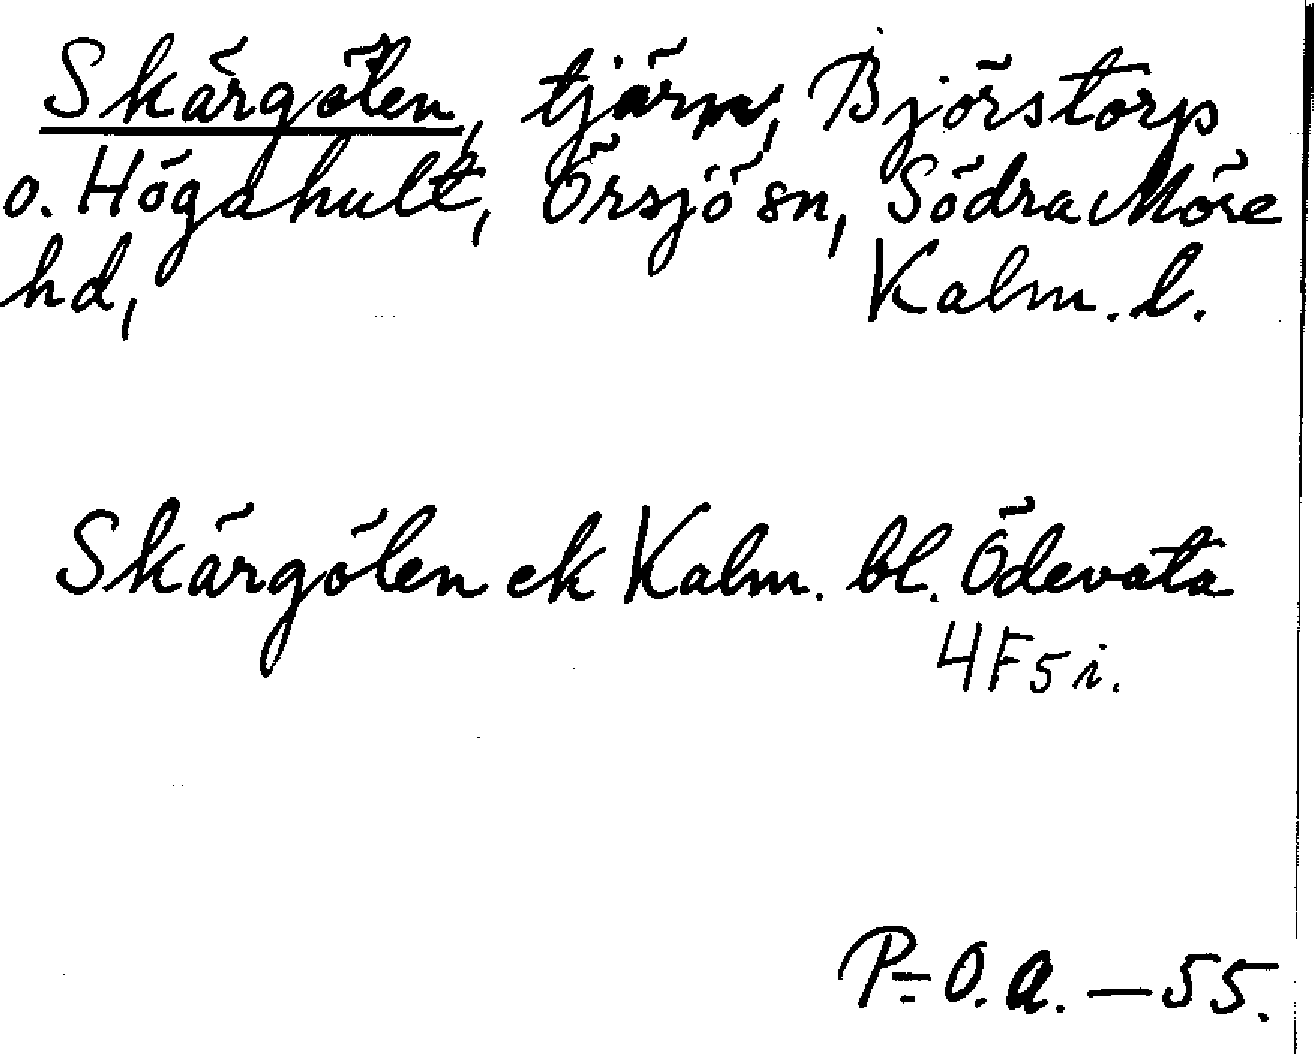 Skärgölen, tjärn, Björstorp
o. Högahult, Örsjö sn, Södra Möre
hd, Kalm. l.
Skärgölen ek Kalm. bl. Ödevata
4F5i.
P-O.A. — 55.